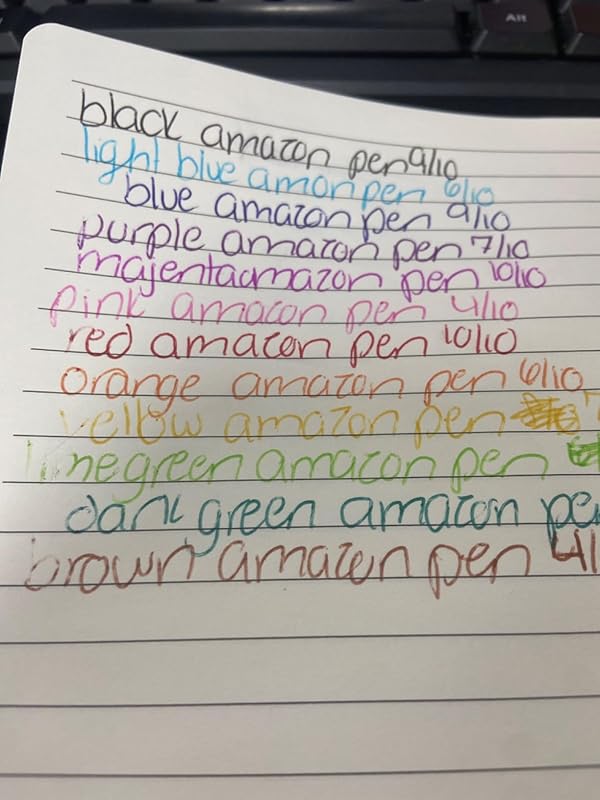 Alt
black amazon pen 9/10
light blue amonpen 6/10
blue amazon pen 9/10
purple amazon pen 7/10
majentaamazon pen 10/10
pink amazon pen 4/10
red amazon pen 10/10
orange amazon pen 6/10
yellow amazon pen
lime green amazon pen
dark green amazon pe
brown amazon pen 4/